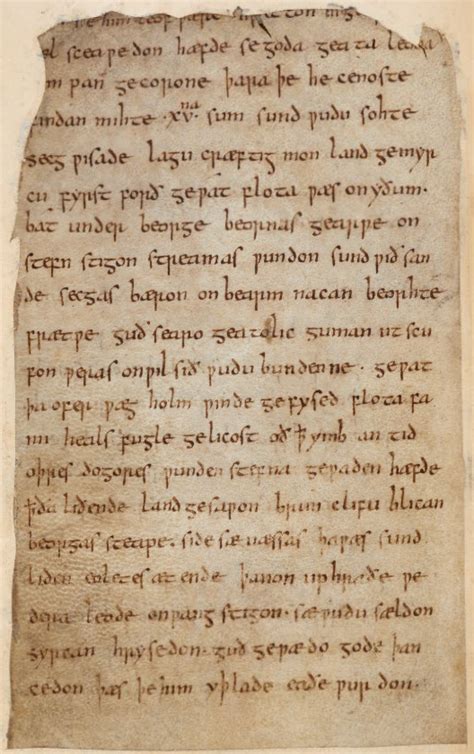 him leof ƿære hƿetton
sceaƿedon hæfde se goda geata leoda
pan gecorone þara þe he cenoste
findan mihte ·xv·na sum sund ƿudu sohte
secg ƿisade lagu cræftig mon land gemyr
cu fyrst forð geƿat flota ƿæs on yðum·
bat under beorge beornas gearƿe on
stefn stigon streamas ƿundon sund ƿið san
de secgas bæron on bearm nacan beorhte
frætƿe guð searo geatolic guman ut scu
fon ƿeras on ƿil sið ƿudu bundenne · geƿat
þa ofer ƿæg holm ƿinde gefysed flota fa
mi heals fugle gelicost oð ꝥ ymb an tid
oþres dogores ƿunden stefna geƿaden hæfde
ꝥ ða liðende land gesaƿon brim clifu blican
beorgas steape. side sænæssas þa ƿæs sund
liden eoletes æt ende þanon up hraðe ƿe
dera leode on ƿang stigon · sæ ƿudu sældon
syrcan hrysedon · guð geƿædo gode þan
cedon þæs þe him yþlade eaðe ƿurdon ·